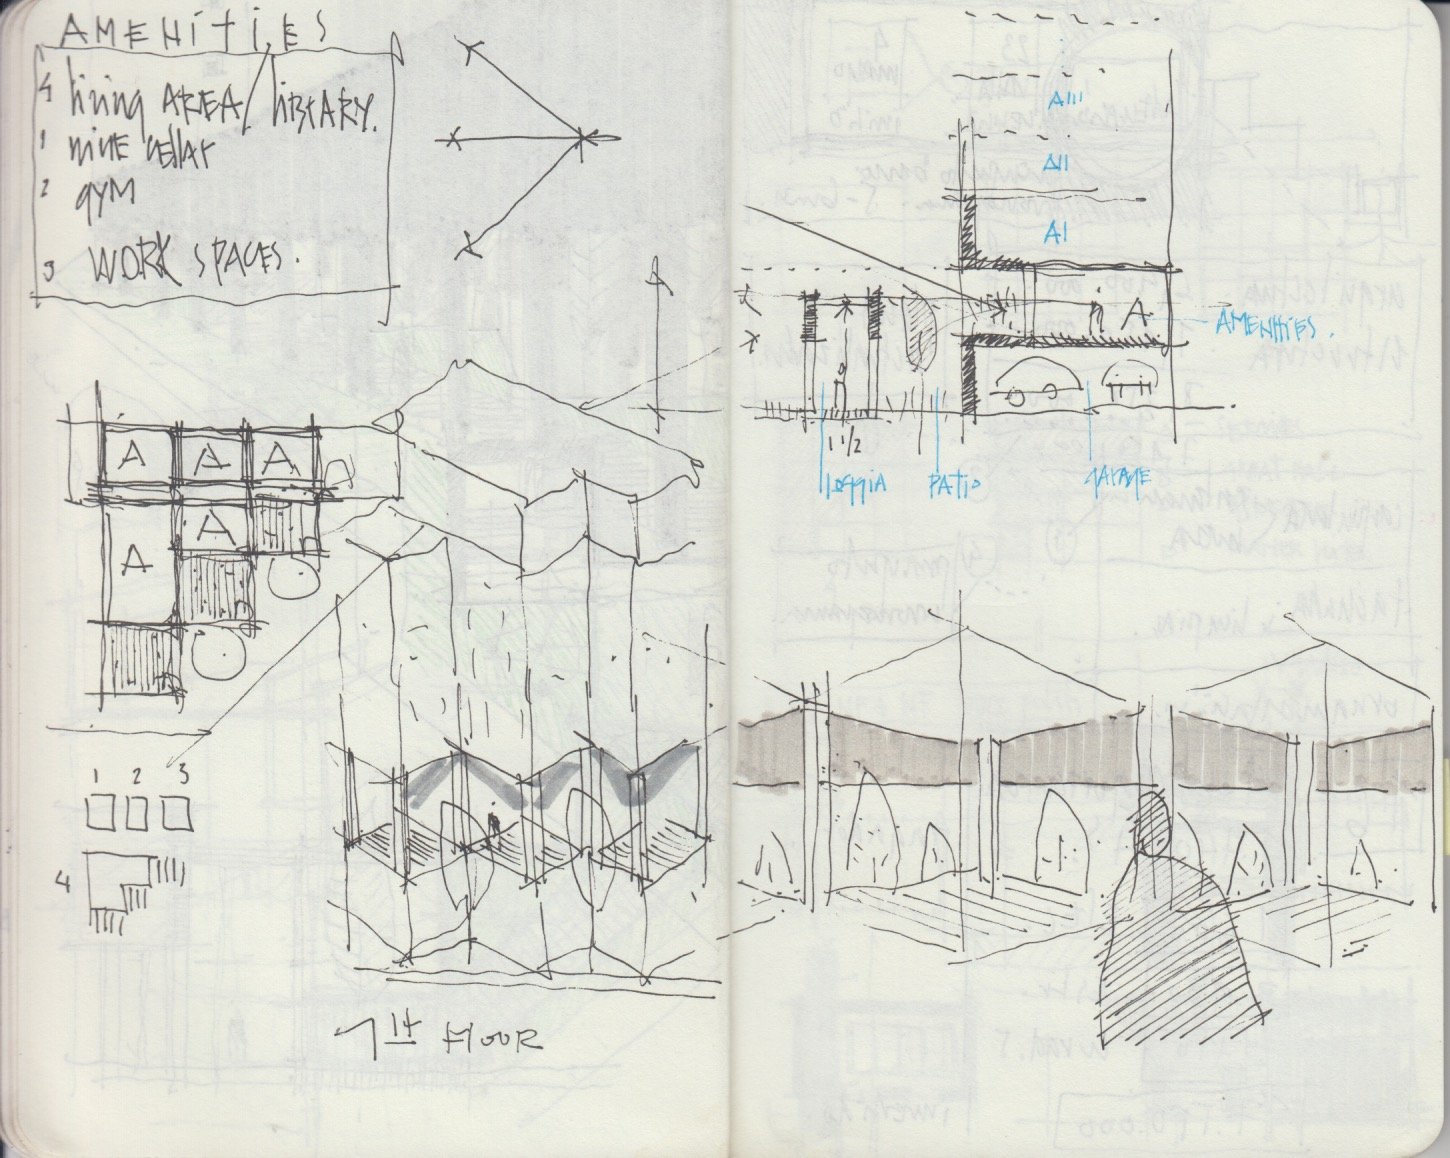 AMENITIES
4 living AREA/ library.
1 wine cellar
2 gym
3 WORK SPACES.
A A A
A
A
1 2 3
4
1st FLOOR
AIII
AII
AI
A
AMENITIES.
1 1/2
loggia PATIO GARAGE